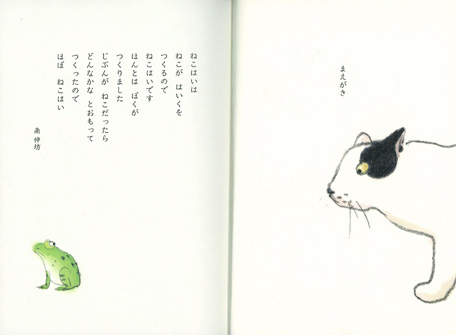 まえがき
ねこはいは
ねこが はいくを
つくるので
ねこはいです
ほんとは ぼくが
つくりました
じぶんが ねこだったら
どんなかな とおもって
つくったので
ほぼ ねこはい
南 伸坊